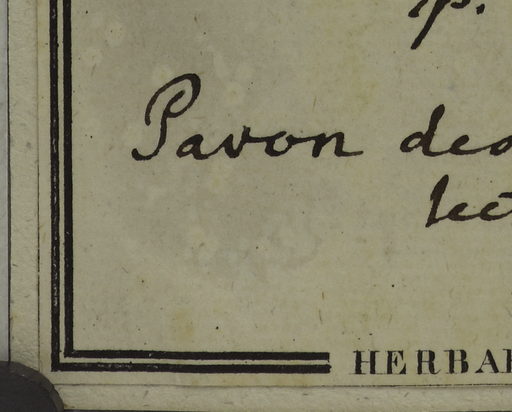 p.
Pavon des
lect
HERBAR